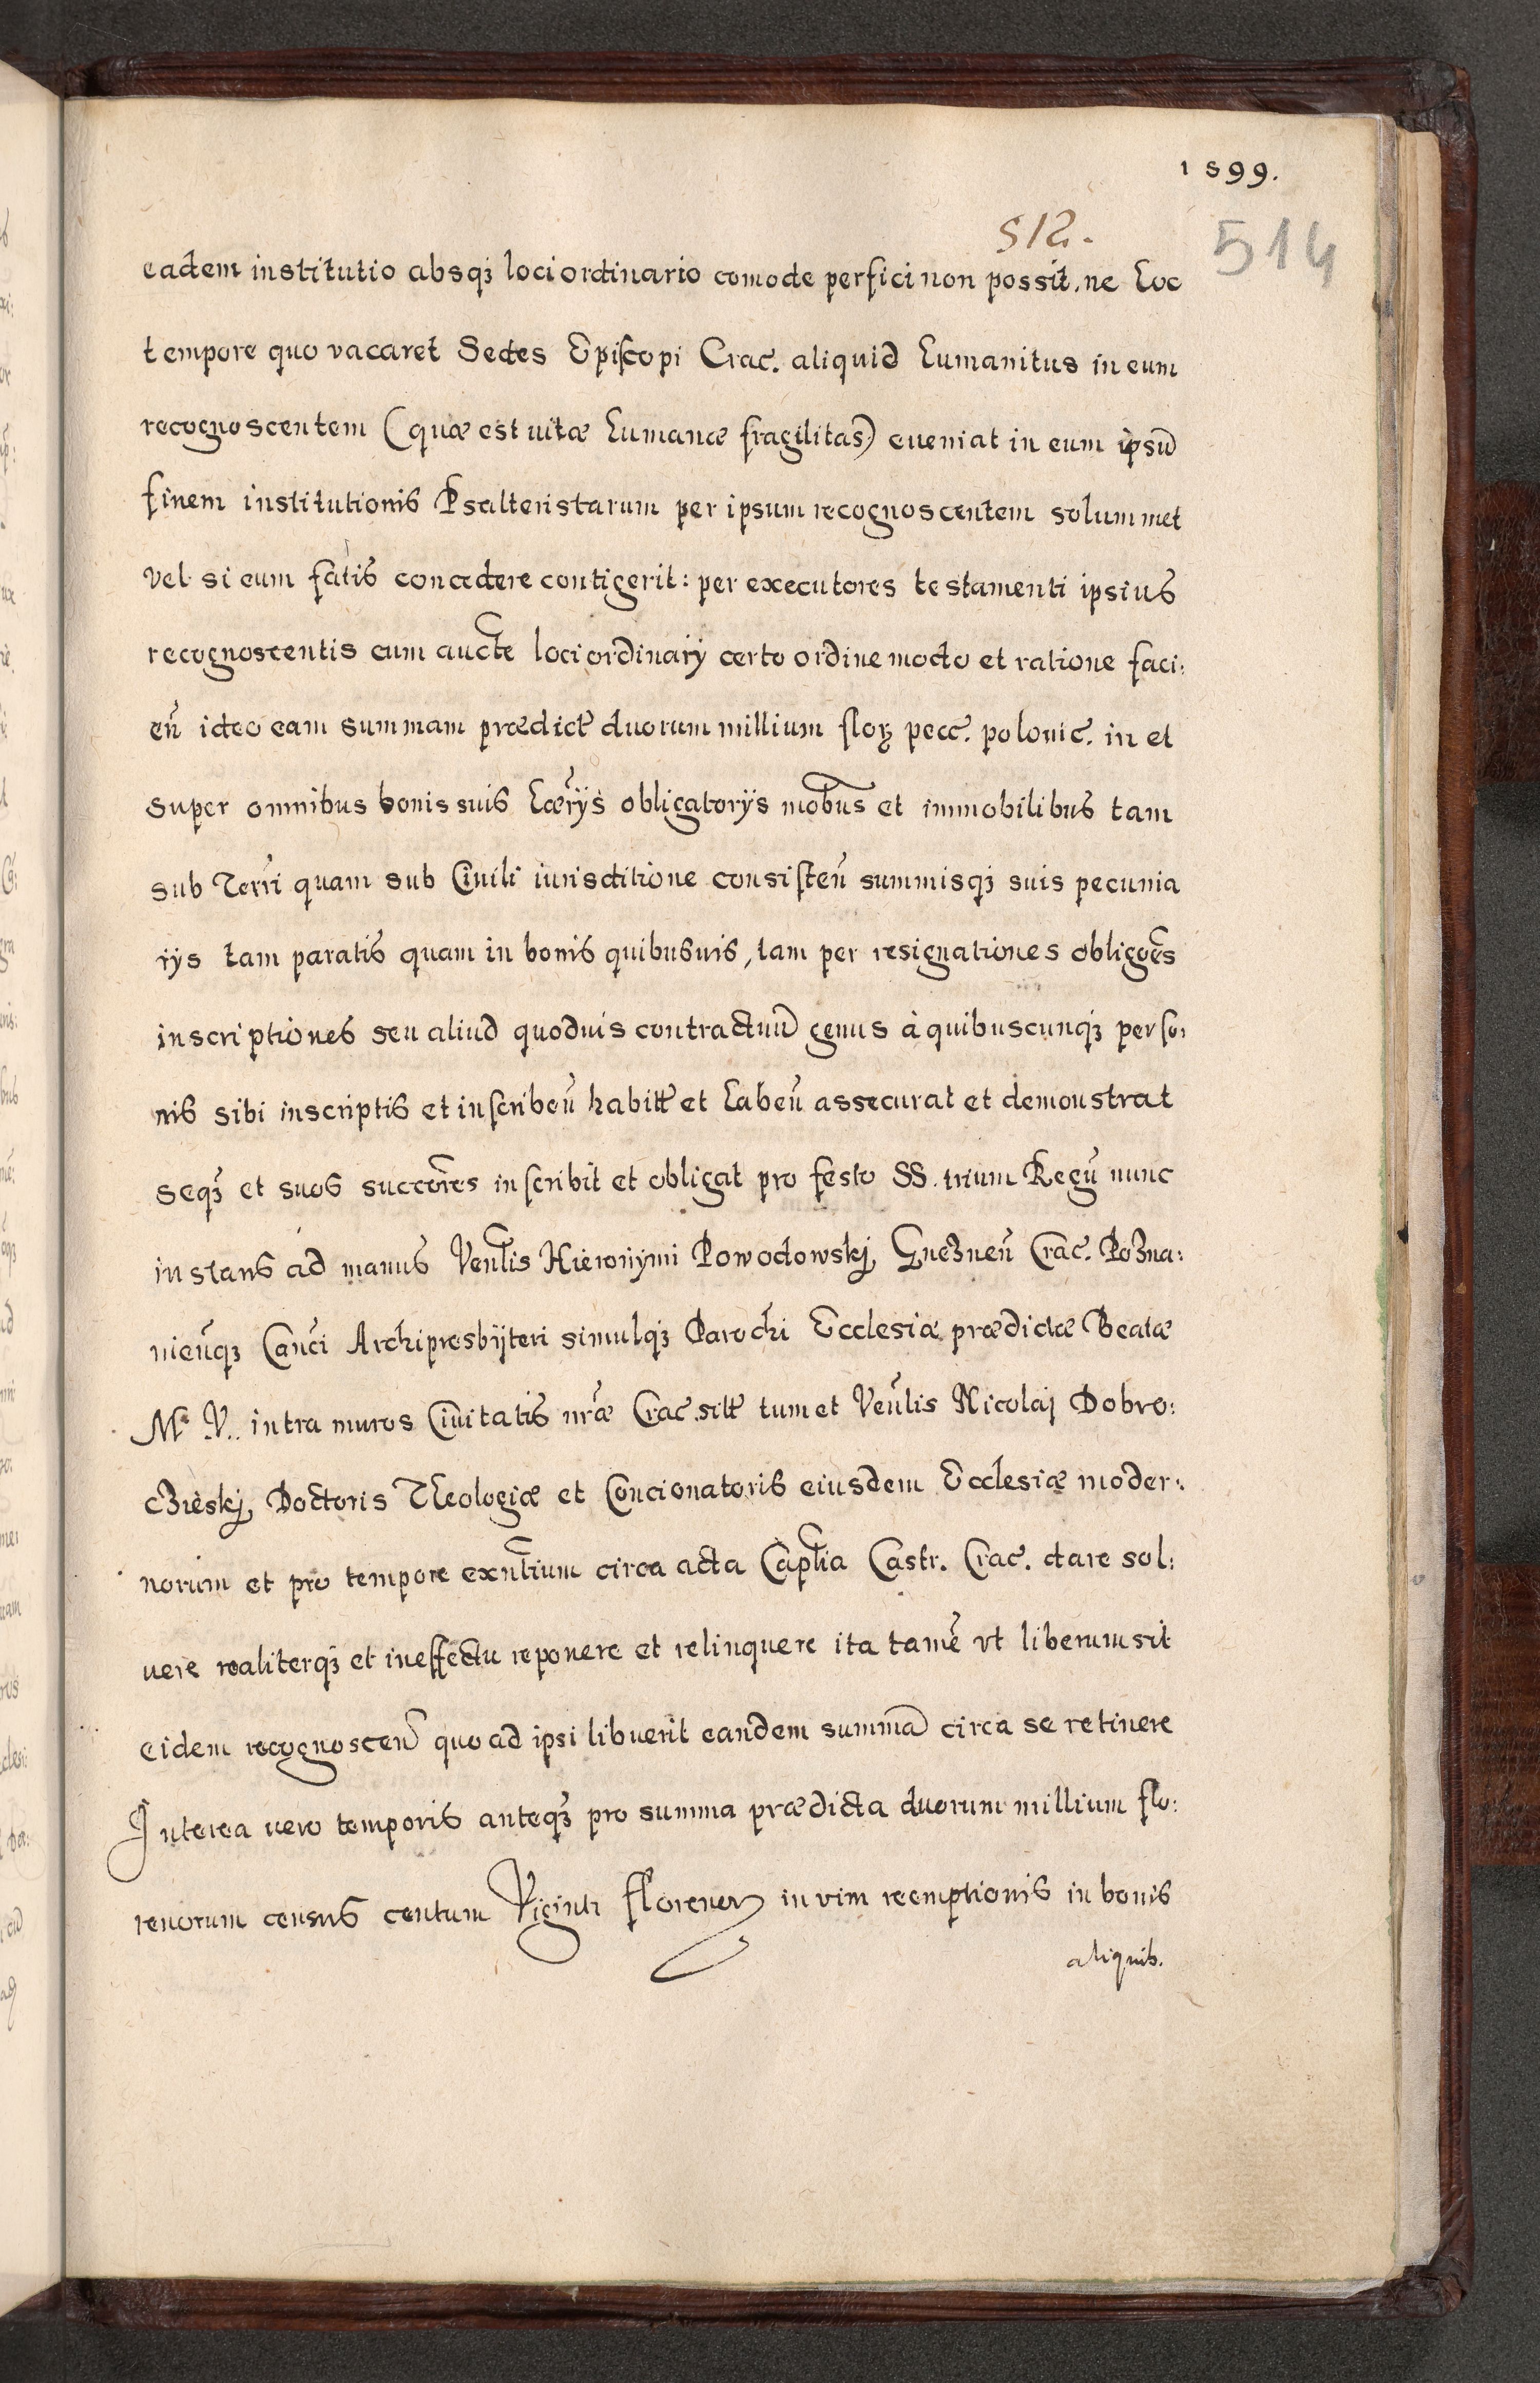 1599.
512.
514
eadem institutio absqȝ loci ordinario comode perfici non possit, ne hoc
tempore quo vacaret Sedes Episcopi Crac. aliquid humanitus in eum
recognoscentem (quæ est uitæ humanæ fragilitas) eueniat in eum ipsũ
finem institutionis Psalteristarum per ipsum recognoscentem solummet
vel si eum fatis concedere contigerit: per executores testamenti ipsius
recognoscentis cum aucte loci ordinarÿ certo ordine modo et ratione faci:
eñ ideo eam summam prædict duorum millium floꝝ pecc. polonic. in et
super omnibus bonis suis hærÿs obligatorÿs mobus et immobilibus tam
sub Terri quam sub Ciuili iurisditione consisteñ summisqȝ suis pecunia
rÿs tam paratis quam in bonis quibusuis, tam per resignationes obligoẽs
inscriptiones seu aliud quoduis contractuũ genus à quibuscunqȝ perso:
nis sibi inscriptis et inscribeñ habitt et habeñ assecurat et demonstrat
seqȝ et suos succores inscribit et obligat pro festo SS. trium Regũ nunc
instans ad manus Venlis Hieronÿmi Powodowskj, Gneznen̄ Crac. Pozna:
nien̄qȝ Canci Archipresbÿteri simulqȝ Parochi Ecclesiæ prædictæ Beatæ
Mæ V. intra muros Ciuitatis nræ Crac. sitt tum et Venlis Nicolaj Dobro:
czieskj, Doctoris Theologiæ et Concionatoris eiusdem Ecclesiæ moder:
norum et pro tempore exntium circa acta Caplia Castr. Crac. dare sol:
uere realiterqȝ et in effectu reponere et relinquere ita tamẽ vt liberum sit
eidem recognoscen̄ quo ad ipsi libuerit eandem summã circa se retinere
Interea uero temporis anteqȝ pro summa prædicta duorum millium flo:
renorum census centum Viginti florenoꝝ in vim reemptionis in bonis
aliquib.